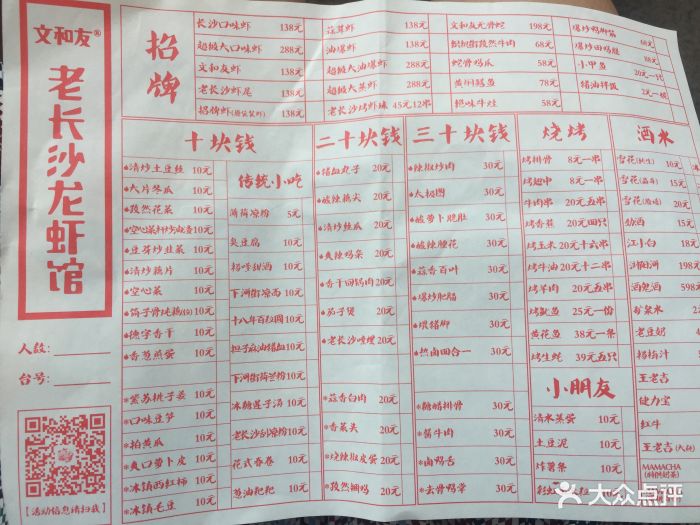 文和友®
老长沙龙虾馆
人数:
台号:
【活动信息请扫我】
招牌
长沙口味虾 138元
超级大口味虾 288元
文和友虾 138元
老长沙虾尾 138元
138元
蒜蓉虾 138元
油爆虾 138元
超级大油爆虾 288元
超级大蒸虾 288元
老长沙烤虾球 45元12串
文和友无骨蛇 198元
68元
58元
78元
58元
爆炒鸭脚筋 68元
88元
小甲鱼
猪油拌饭
十块钱
清炒土豆丝 10元
大片冬瓜 10元
孜然花菜 10元
10元
豆芽炒韭菜 10元
清炒藕片 10元
空心菜 10元
10元
德字香干 10元
香葱煎蛋 10元
紫苏桃子姜 10元
口味豆笋 10元
拍黄瓜 10元
爽口萝卜皮 10元
冰镇西红柿 10元
冰镇毛豆 10元
传统小吃
薄荷凉粉 5元
臭豆腐 10元
10元
下河街凉面 10元
十八年百粒圆 10元
担子麻油猪血 10元
10元
冰糖莲子汤 10元
老长沙刮凉粉 10元
花式春卷 10元
葱油粑粑 10元
二十块钱
猪血丸子 20元
酸辣藕尖 20元
清炒丝瓜 20元
酸辣鸡杂 20元
香干回锅肉 20元
茄子煲 20元
20元
蒜香白肉 20元
香菜头 20元
烧辣椒皮蛋 20元
20元
三十块钱
辣椒炒肉 30元
太极图 30元
酸萝卜肥肚 30元
酸辣腰花 30元
蒜香百叶 30元
爆炒肥肠 30元
30元
热卤四合一 30元
糖醋排骨 30元
酱牛肉 30元
卤鸭舌 30元
去骨鸭掌 30元
烧烤
烤排骨 8元一串
烤翅中 8元一串
牛肉串 20元五串
烤香蕉 20元四只
烤玉米 20元十六串
烤牛油 20元十二串
烤羊肉 20元五串
烤鱿鱼 25元一份
黄花鱼 38元一条
烤生蚝 39元五只
小朋友
清水蒸蛋 10元
土豆泥 10元
炸薯条 10元
酒水
雪花(纯生) 10元
雪花 15元
雪花 20元
劲酒 15元
江小白 18元
浏阳河 198元
酒鬼酒 598元
矿泉水
老豆奶
杨梅汁
王老吉
健力宝
红牛
王老吉
MAMACHA
大众点评